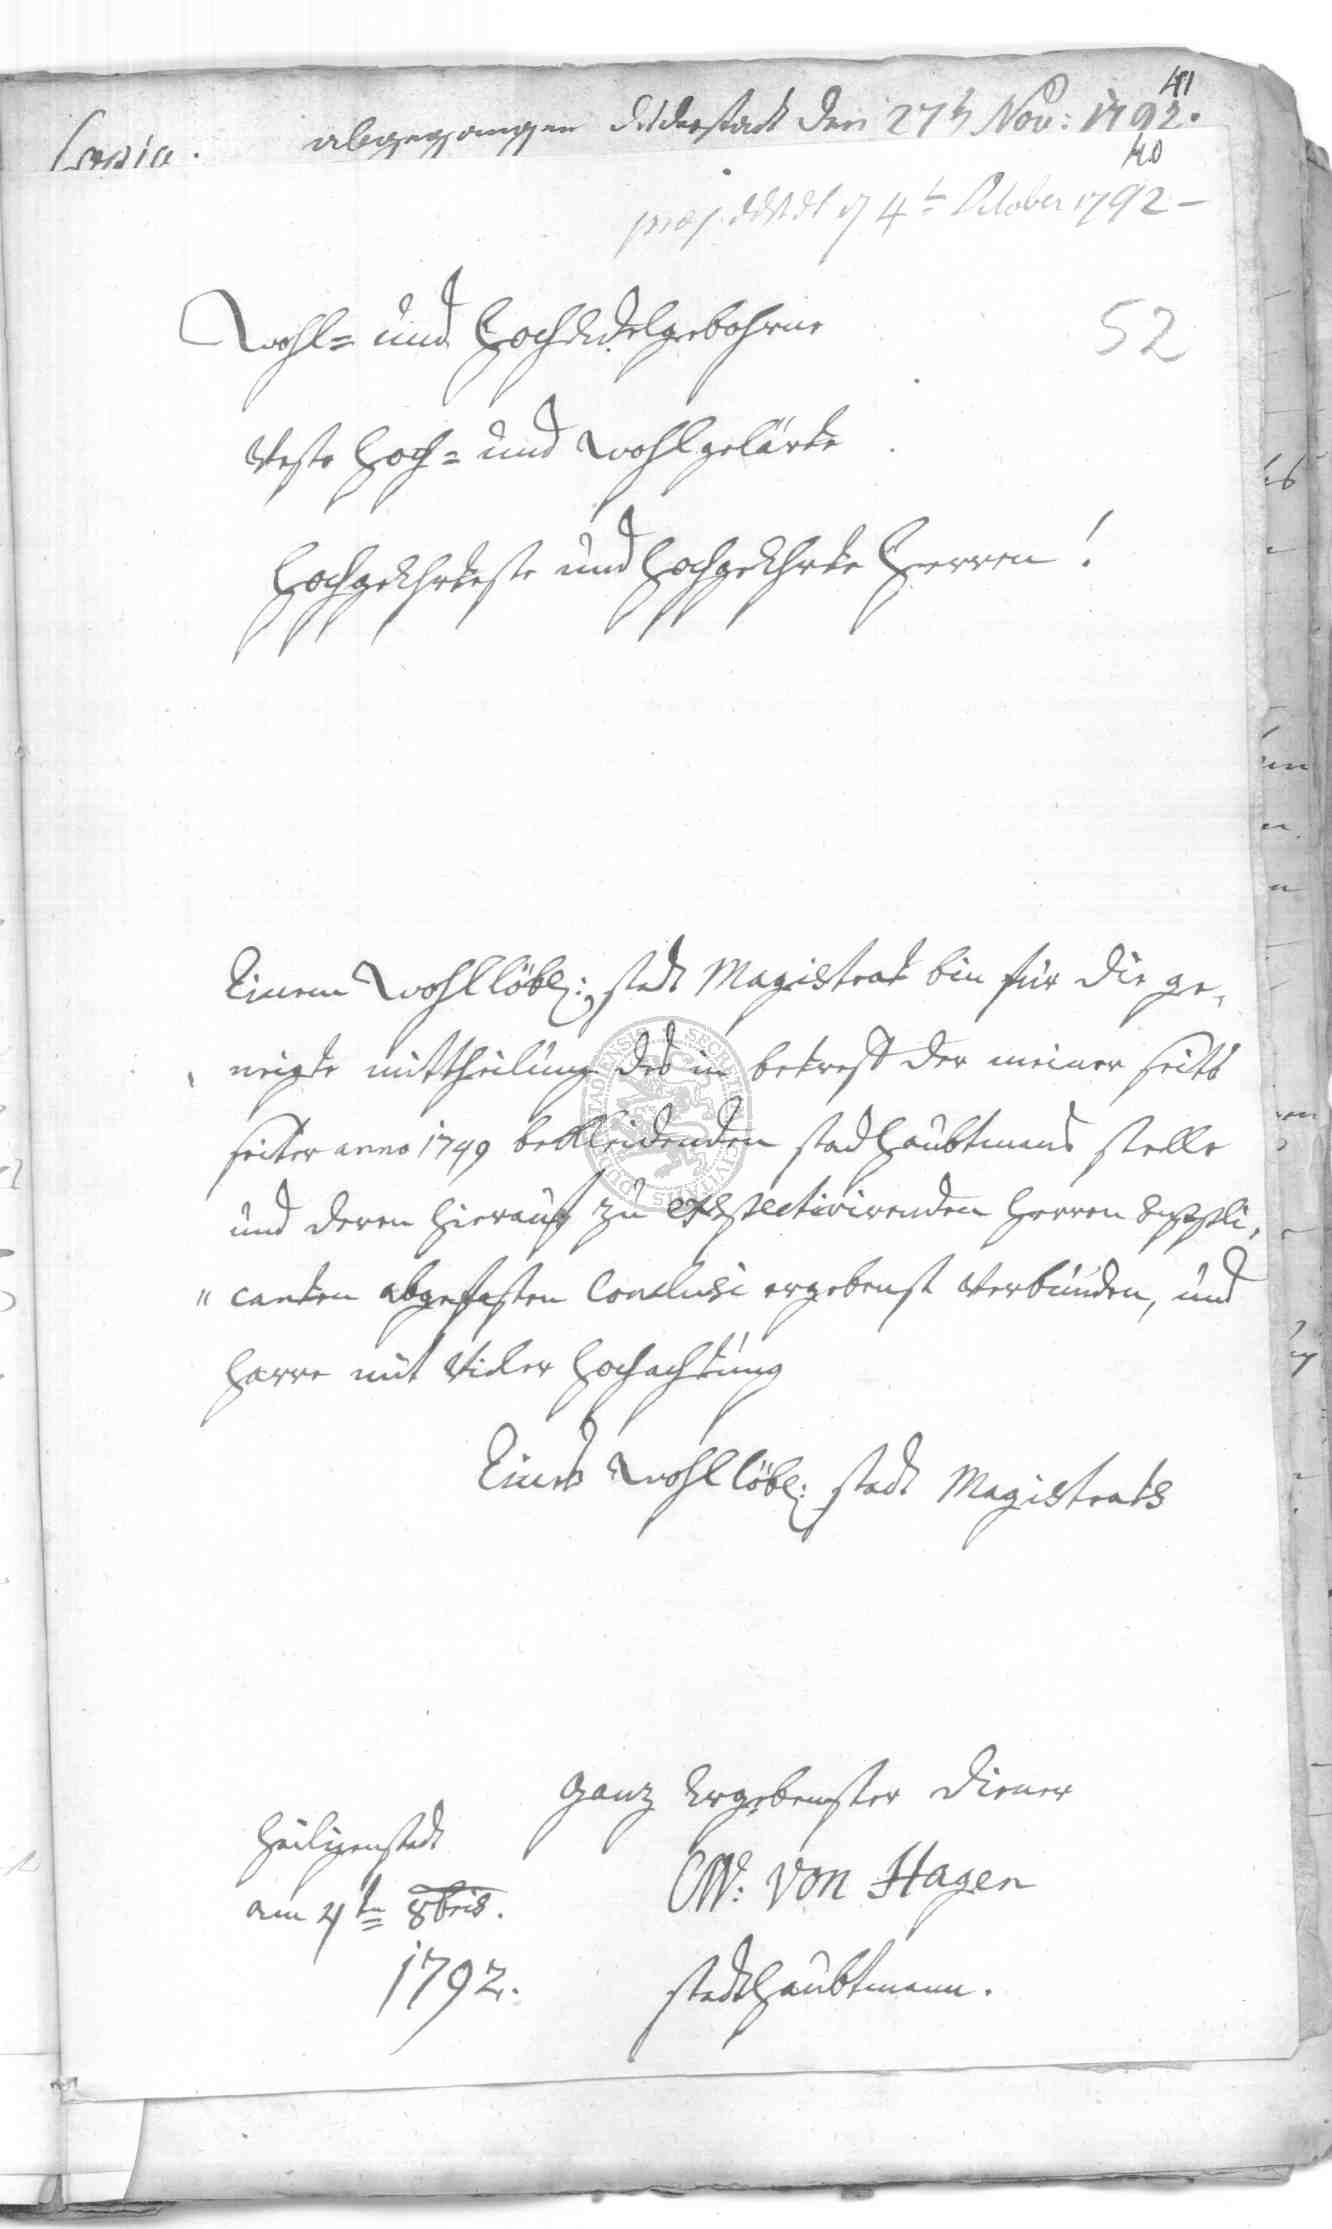 41
Copia. abgegangen Duderstadt den 27t Nov: 1792.
40
præs. d 4t October 1792 –
52
Wohl= und HochEdelgebohrne
Veste Hoch= und Wohlgelärte
HochgeEhrteste und HochgeEhrte Herren!
Einem Wohllöbl: stadt Magistrat bin für die ge„
„neigte mittheilung des in betreff der meiner seits
seither anno 1749 bekleidenden stadhaubtmans stelle
und deren hierauf zu exspectivirenden Herren Suppli„
„canten abgefasten Conclusi ergebenst Verbunden, und
harre mit Vieler Hochachtung
Eines Wohllöbl: stadt Magistrats
ganz Ergebenster diener
Heiligenstadt
am 4ten 8bris.
1792.
CW: von Hagen
stadthaubtmann.
SECRETUM CIVITATIS DUDERSTADENSIS